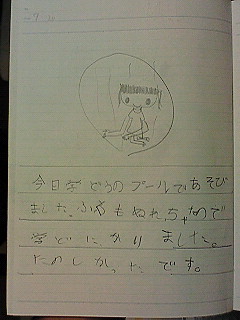 今日学どうのプールであそび
ました。ふくもぬれちゃたので
学どにかり ました。
たのしかったです。